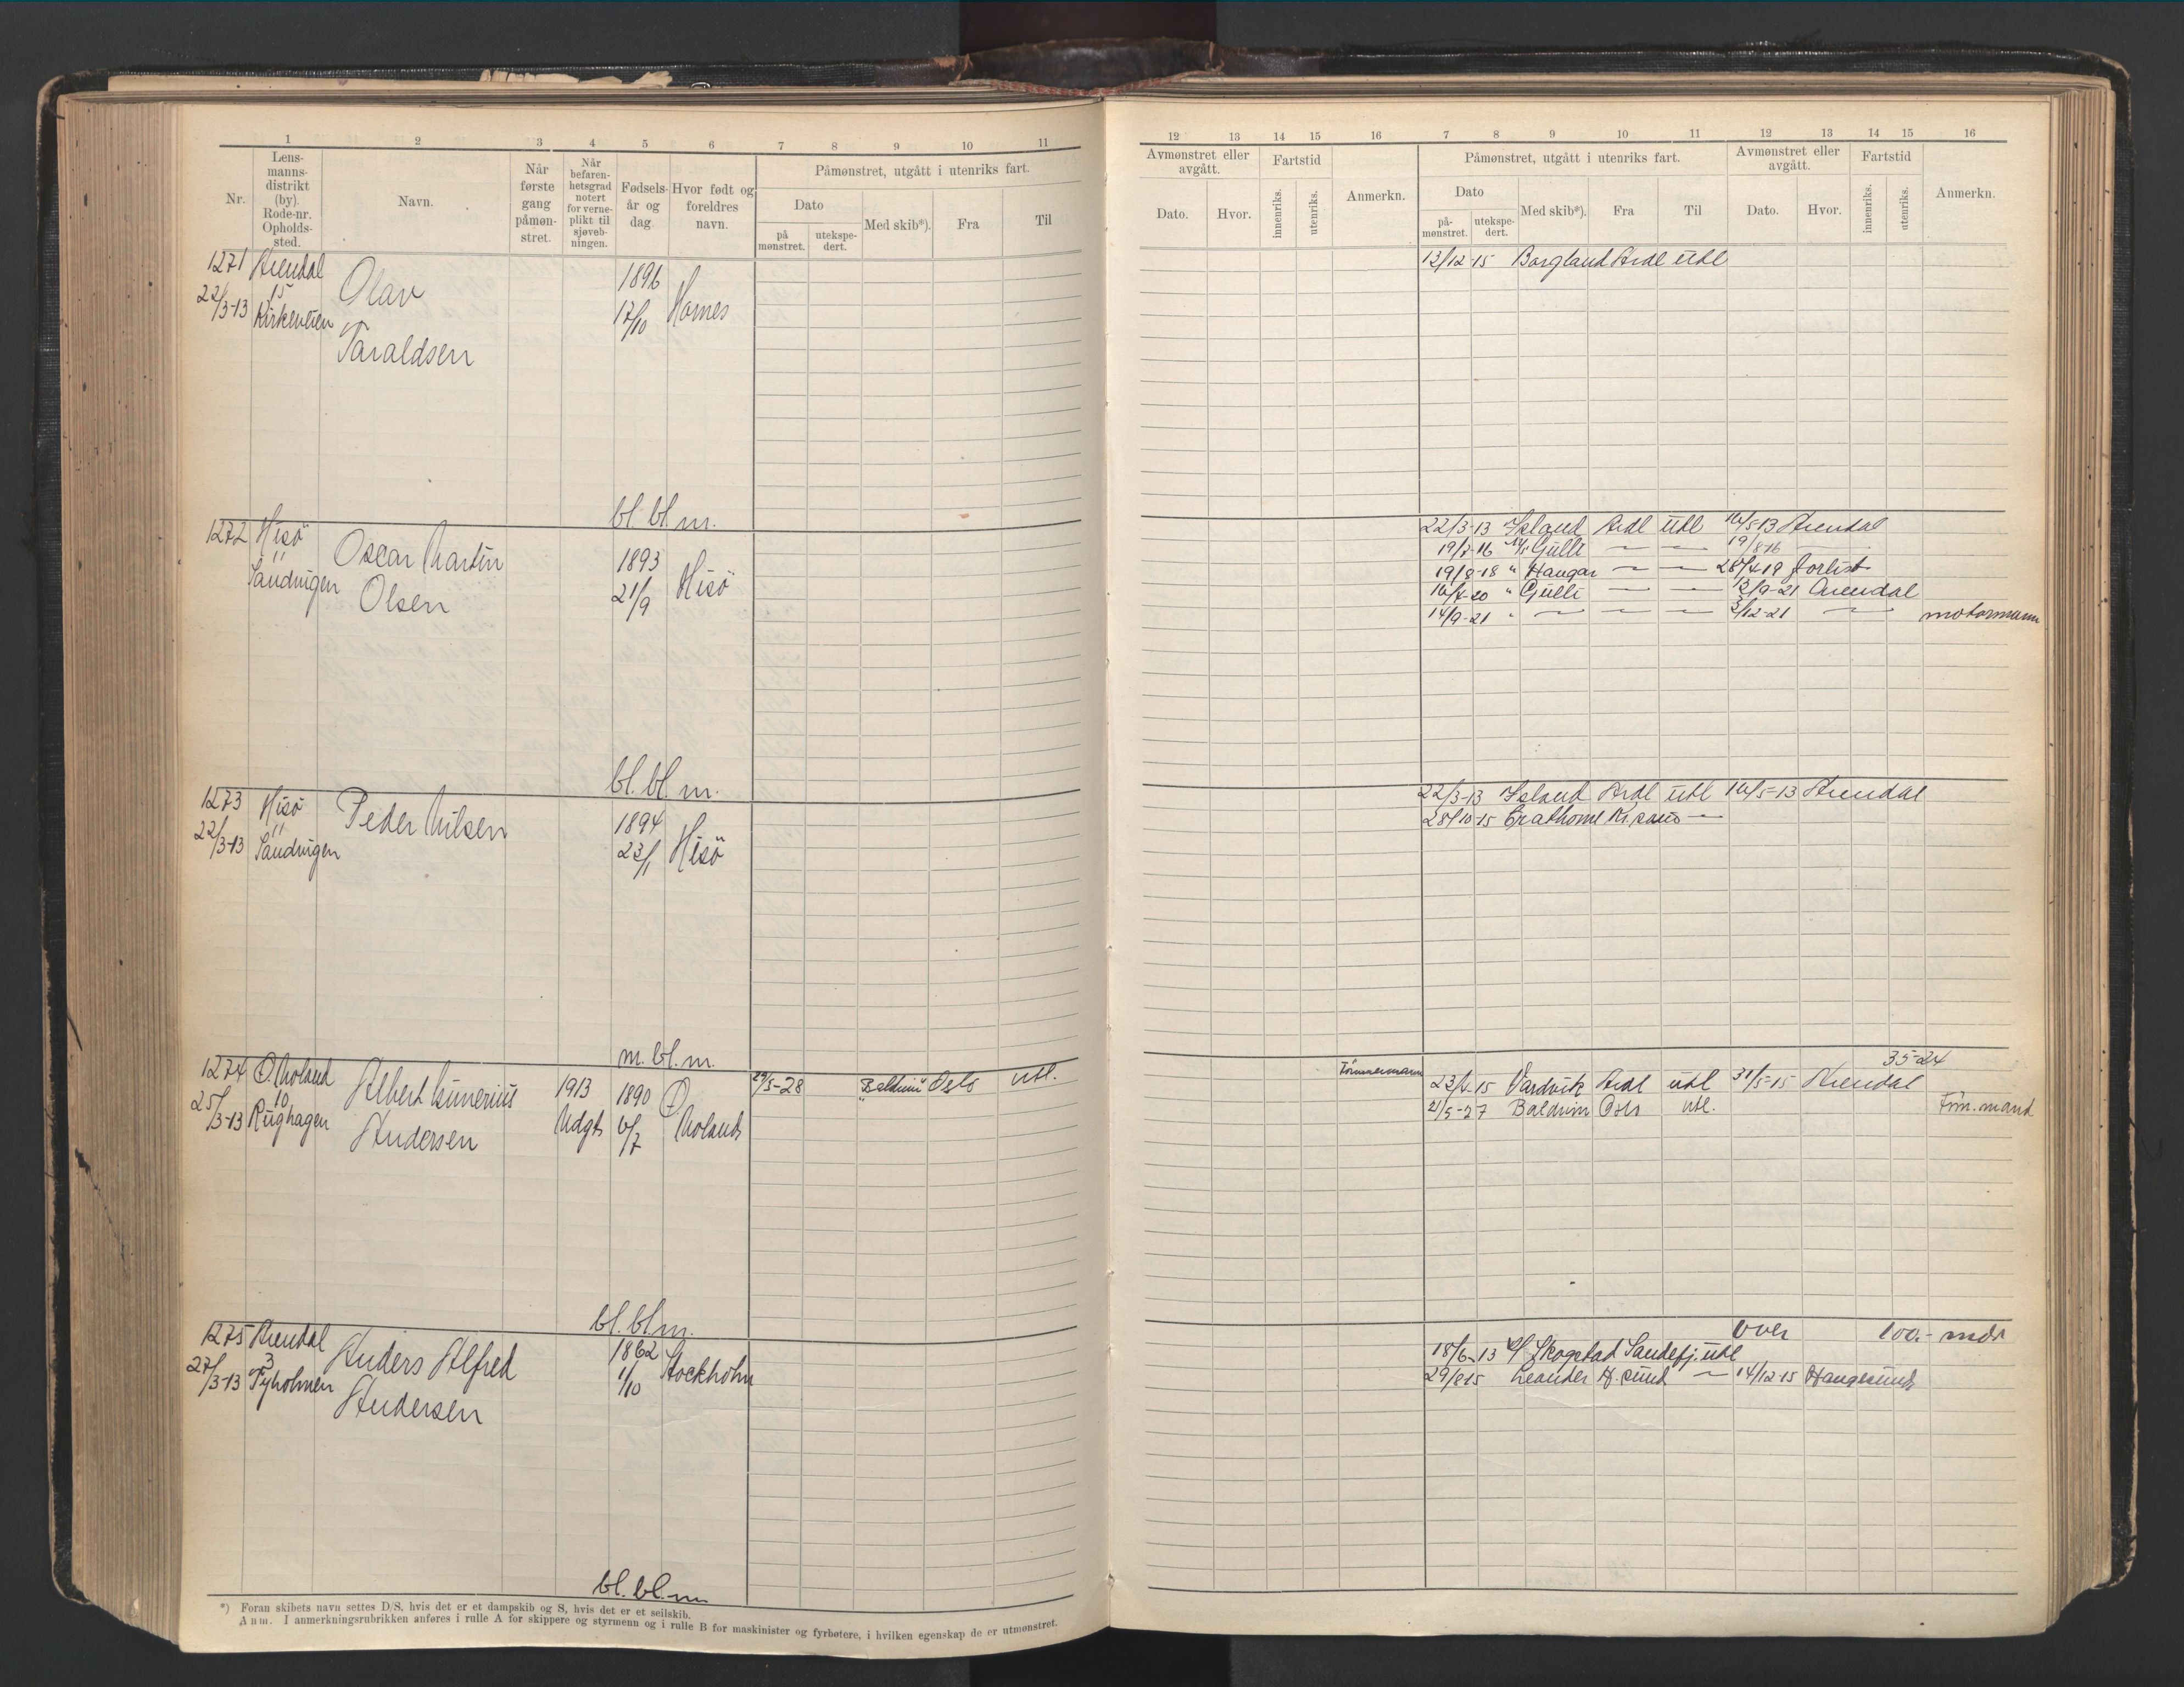 1 2 3 4 5 6 7 8 9 10 11
Nr.
Lens-
manns-
distrikt
(by).
Rode-nr.
Opholds-
sted.
Navn.
Når
første
gang
påmøn-
stret.
Når
befaren-
hetsgrad
notert
for verne-
plikt til
sjøveb-
ningen.
Fødsels-
år og
dag.
Hvor født og
foreldres
navn.
Påmønstret, utgått i utenriks fart.
Dato
på
mønstret.
utekspe-
dert.
Med skib*).
Fra
Til
1271 Arendal
15
22/3-13 Kirkeveien
Olav
Taraldsen
1896
17/10
Homes
bl. bl. m.
1272 Hisö
11
Sandvigen
Oscar Martin
Olsen
1893
21/9
Hisö
bl. bl. m.
1273 Hisö
11
22/3-13 Sandvigen
Peder Nilsen
1894
23/1
Hisö
m. bl. m.
1274 Ö. Moland
10
25/3-13 Rughagen
Albert
Andersen
1913
Udgt
1890
6/7
Ö
Moland
29/5-28 Oslo utl.
bl. bl. m.
1275 Arendal
3
27/3-13 Tyholmen
Anders Alfred
Andersen
1862
1/10
Stockholm
bl. bl. m
*) Foran skibets navn settes D/S, hvis det er et dampskib og S, hvis det er et seilskib.
Anm. I anmerkningsrubrikken anføres i rulle A for skippere og styrmenn og i rulle B for maskinister og fyrbøtere, i hvilken egenskap de er utmønstret.
12 13 14 15 16 7 8 9 10 11 12 13 14 15 16
Avmønstret eller
avgått.
Dato.
Hvor.
Fartstid
innenriks.
utenriks.
Anmerkn.
Påmønstret, utgått i utenriks fart.
Dato
på-
mønstret.
utekspe-
dert.
Med skib*).
Fra
Til
Avmønstret eller
avgått.
Dato.
Hvor.
Fartstid
innenriks.
utenriks.
Anmerkn.
13/12-15 Borgland Ardl utl
22/3-13 Island Ardl utl 16/5-13 Arendal
19/7-16 Gulli — — 19/8-16 —
19/8-18 " Haugar — — 28/4-19 forlist
16/4-20 " Gulli — — 13/9-21 Arendal
14/9-21 " — — — 3/12-21 — motormann
22/3-13 Island Ardl utl 16/5-13 Arendal
28/10-15 Krsand —
35-24
Tömmermann
23/4-15 Vardvik Ardl utl 31/5-15 Arendal
21/5-27 Baldwin Oslo utl. Töm. mand
over 100.- mdr
18/6-13 Skogstad Sandefj. utl
29/8-15 Leander H. sund — 14/12-15 Haugesund